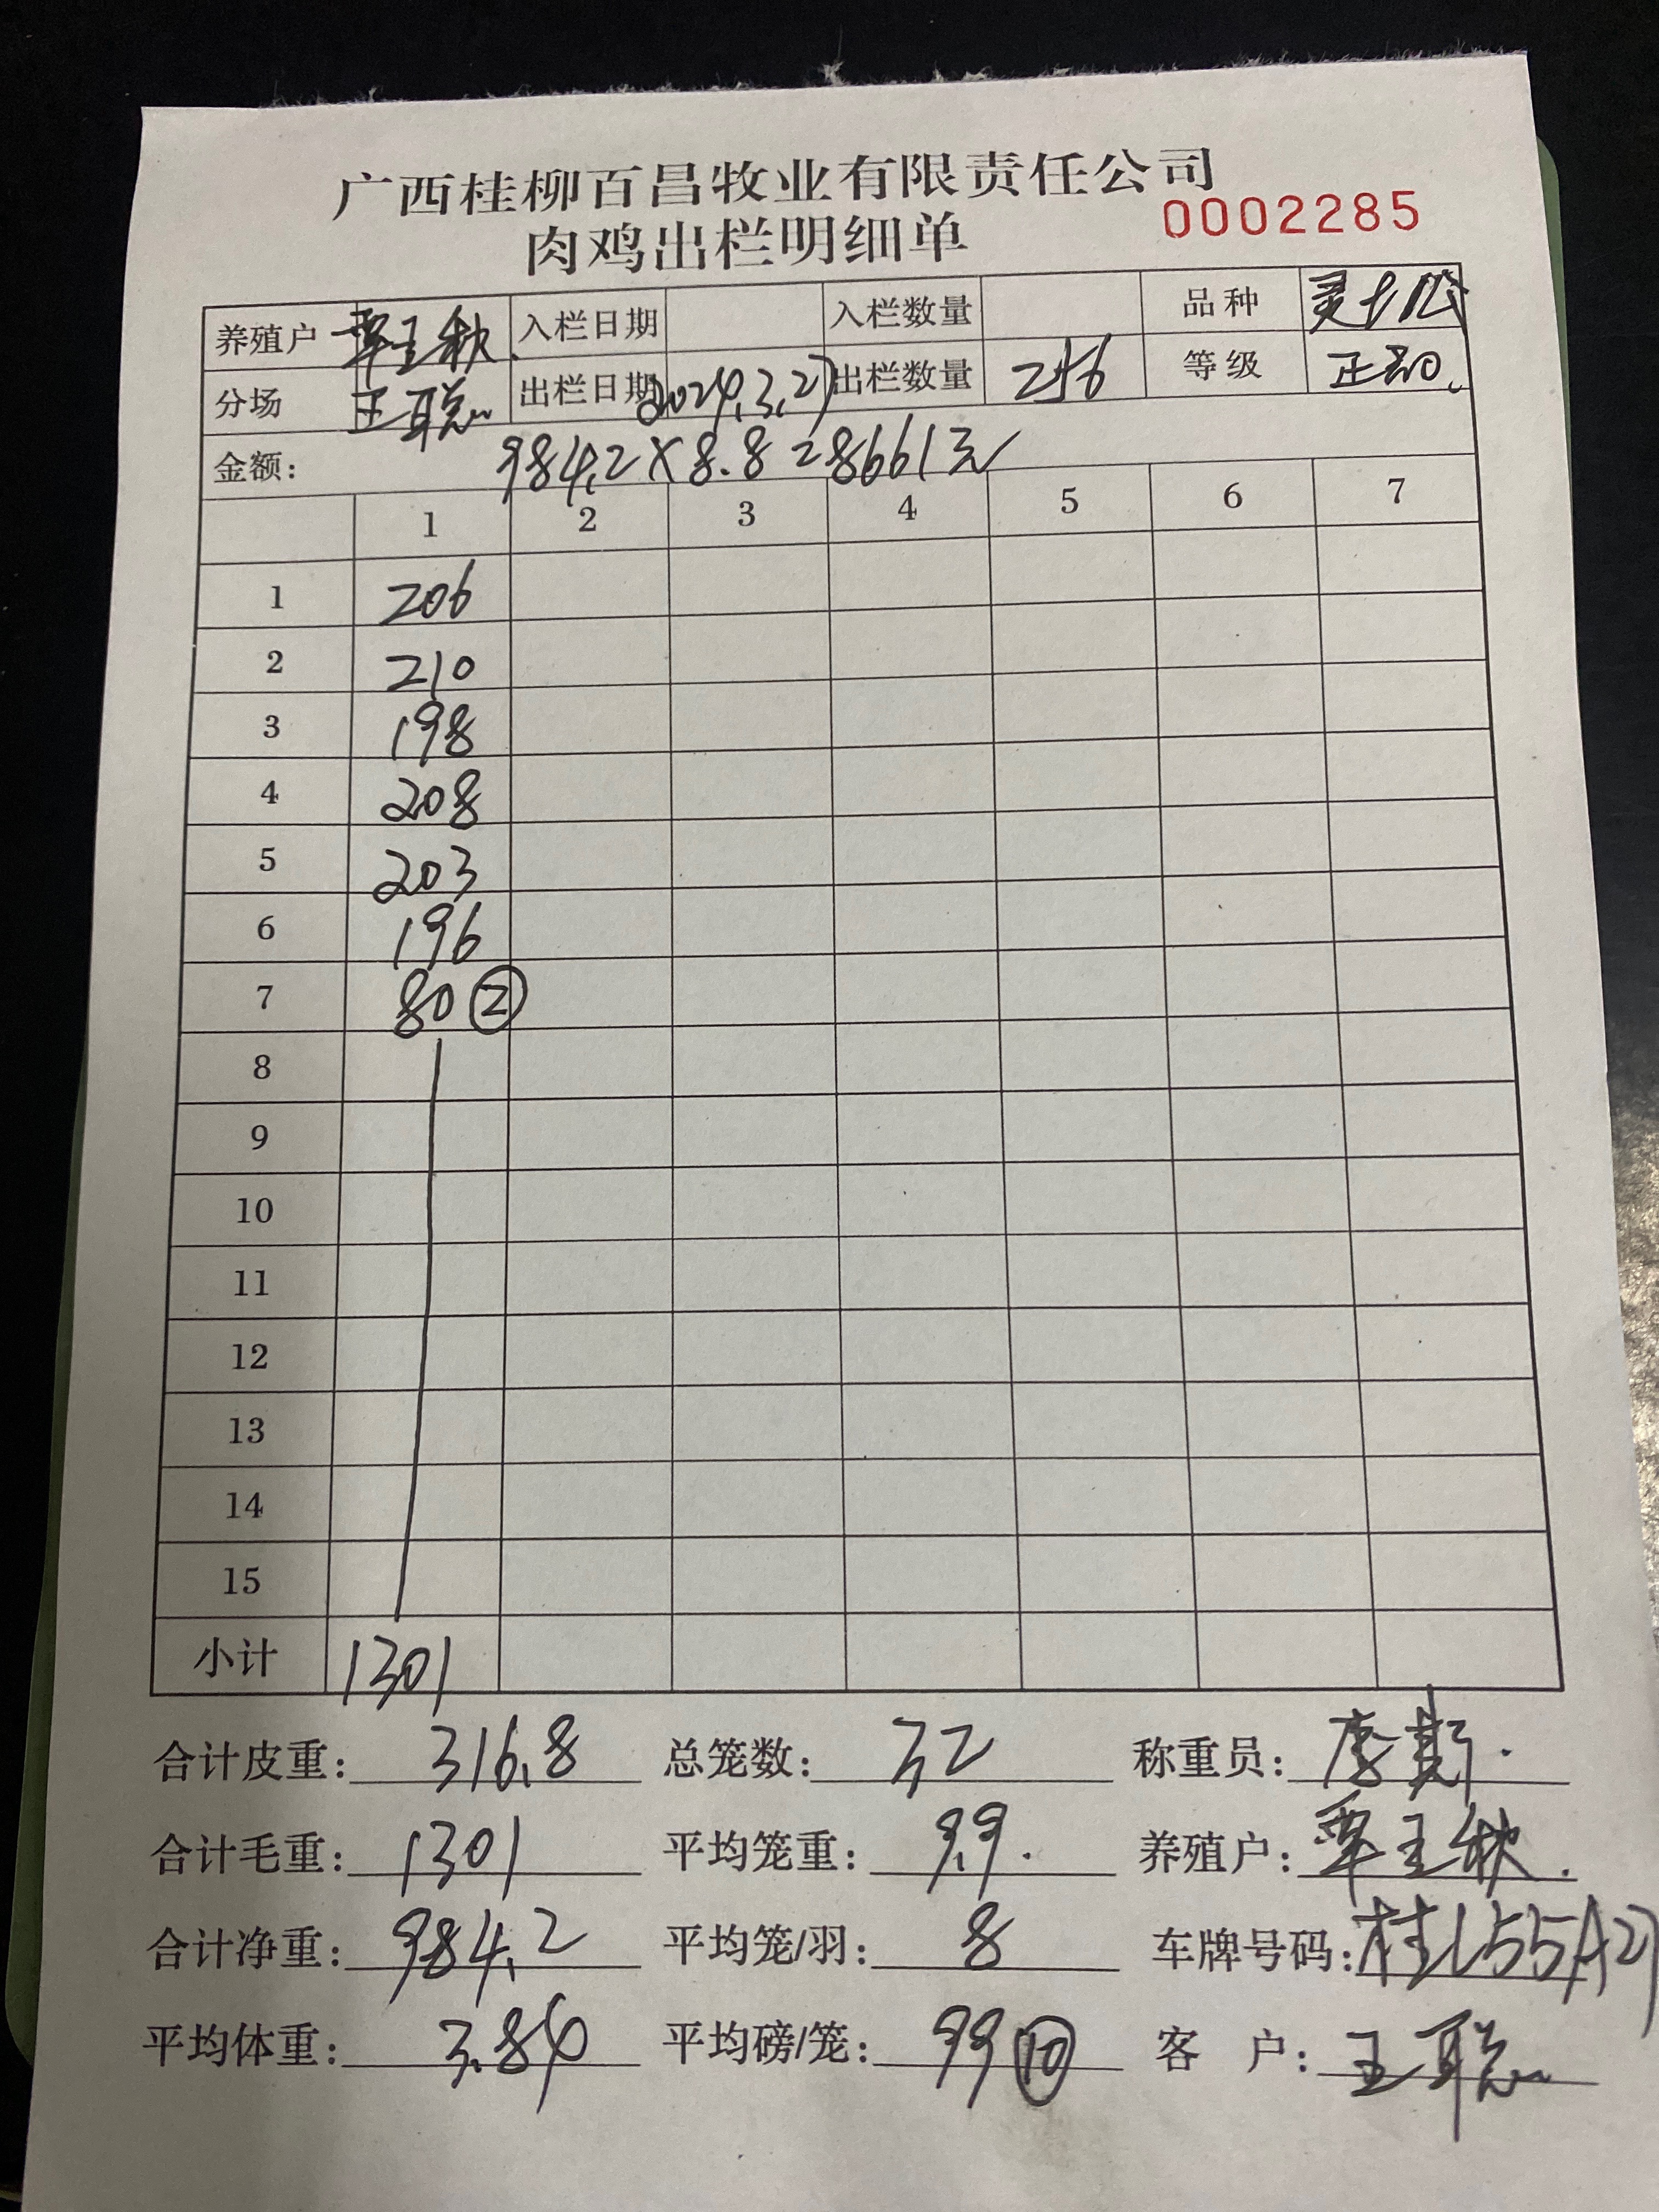 广西桂柳百昌牧业有限责任公司
肉鸡出栏明细单 0002285
养殖户 覃王秋 入栏日期 入栏数量 品种
分场 王聪 出栏日期 2024.3.27 出栏数量 256 等级 正品
金额: 984.2×8.8=8661元
1 2 3 4 5 6 7
1 206
2 210
3 198
4 208
5 203
6 196
7 80 ②
8
9
10
11
12
13
14
15
小计 1301
合计皮重: 316.8 总笼数: 32 称重员: 李
合计毛重: 1301 平均笼重: 9.9. 养殖户: 覃王秋.
合计净重: 984.2 平均笼/羽: 8 车牌号码: 桂L55A27
平均体重: 3.84 平均磅/笼: 99 ⑩ 客 户: 王聪